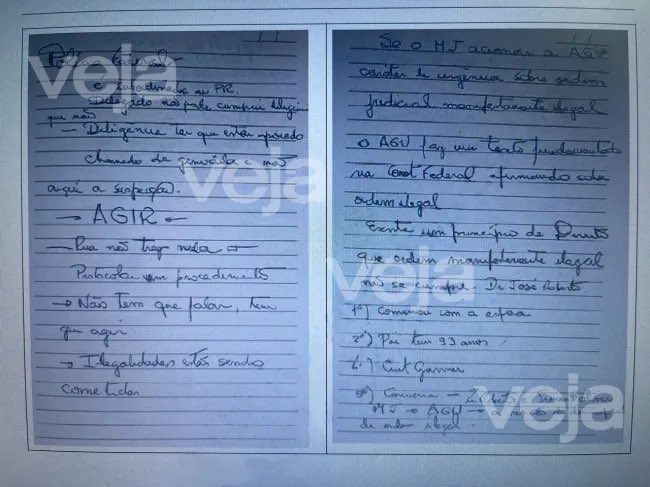 é subordinado ao PR.
Delegado não pode cumprir
que não
— Deligência ter que estar apoiado
chamado de genocida e não
aqui a suspeição.
→ AGIR ←
— Rua não traz nada
Protocola um procedimento
→ Não tem que falar, tem
que agir.
→ Ilegalidades estão sendo
cometidas
Se o MJ acionou a AGU
caráter de urgência sobre ordem
judicial manifestamente ilegal
O AGU faz um texto fundamentado
na Const Federal afirmando sobre
ordem ilegal
Existe um princípio de Direito
que ordem manifestamente ilegal
não se cumpre. Dr José Roberto
1º) Conversou com a esposa
2º) Pai tem 93 anos
Curt Garner
Conversa
MJ → AGU → a respeito do
de ordem ilegal.
veja
veja
veja
veja